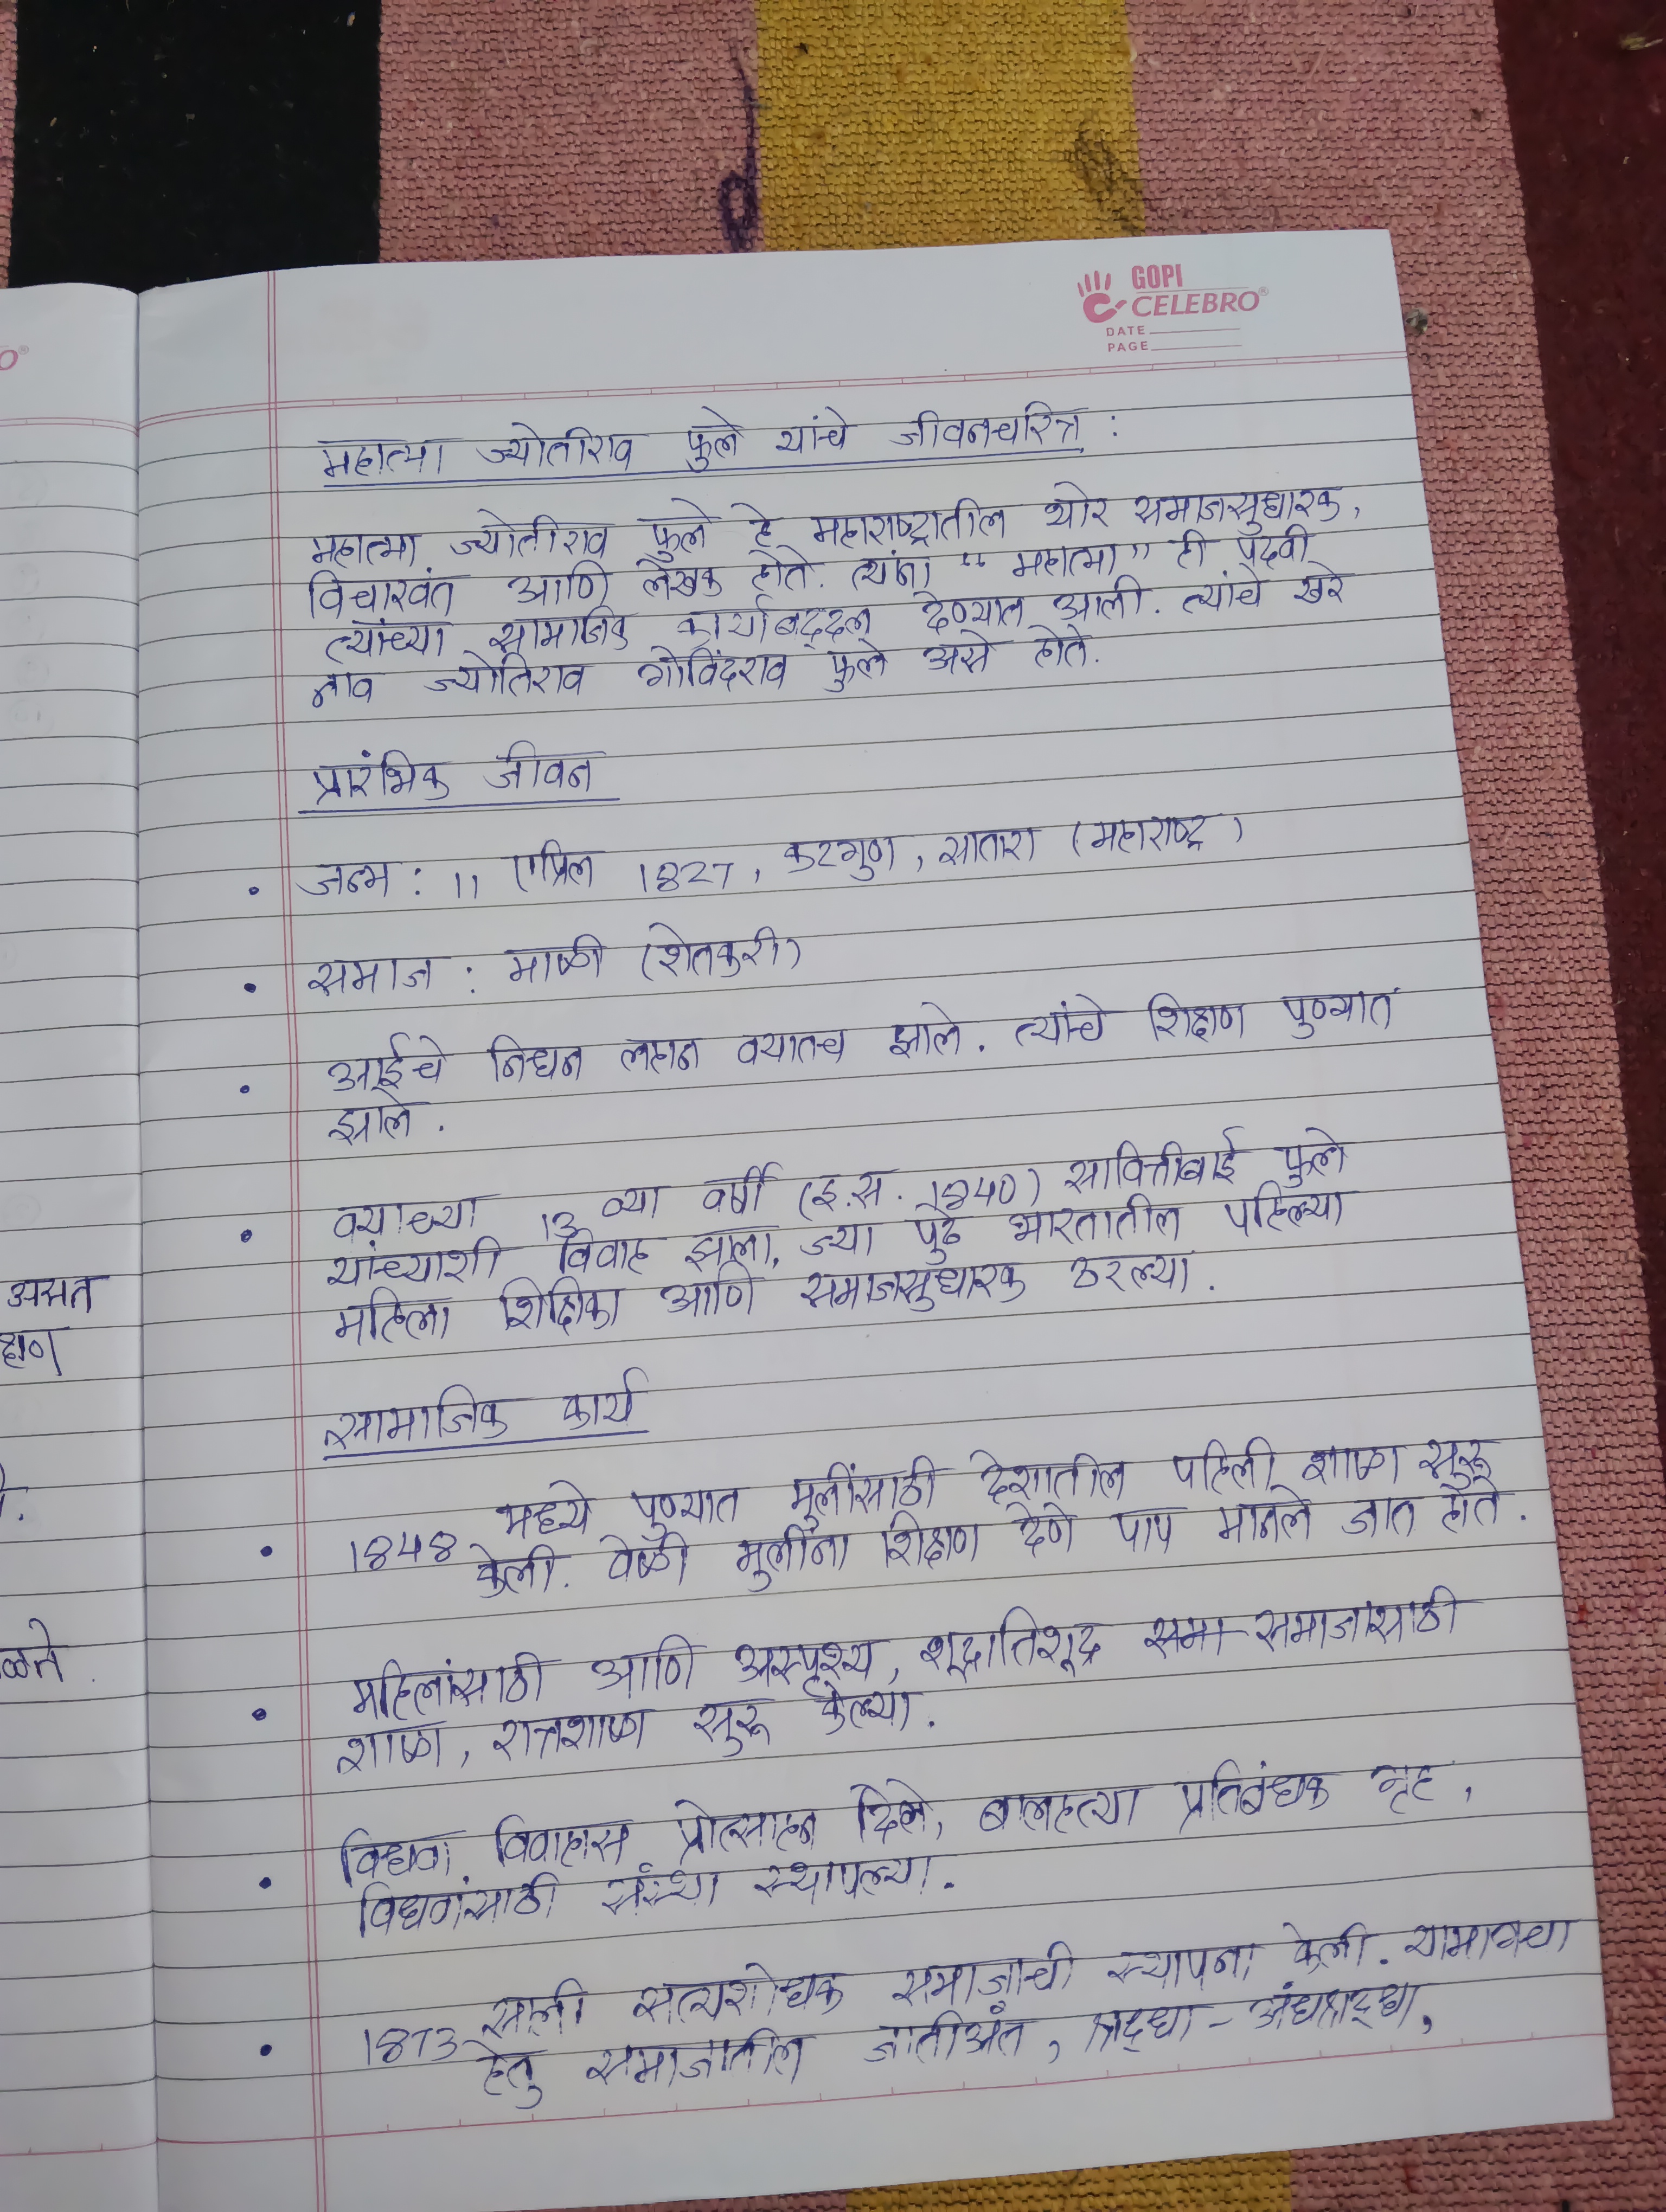 GOPI
CELEBRO®
DATE
PAGE
महात्मा ज्योतीराव फुले यांचे जीवनचरित्र :
महात्मा ज्योतीराव फुले हे महाराष्ट्रातील थोर समाजसुधारक,
विचारवंत आणि लेखक होते. त्यांना "महात्मा" ही पदवी
त्यांच्या सामाजिक कार्याबद्दल देण्यात आली. त्यांचे खरे
नाव ज्योतिराव गोविंदराव फुले असे होते.
प्रारंभिक जीवन
• जन्म : 11 एप्रिल 1827, कटगुण, सातारा (महाराष्ट्र)
• समाज : माळी (शेतकरी)
• आईचे निधन लहान वयातच झाले. त्यांचे शिक्षण पुण्यात
झाले.
• वयाच्या 13 व्या वर्षी (इ.स. 1840) सावित्रीबाई फुले
यांच्याशी विवाह झाला, ज्या पुढे भारतातील पहिल्या
महिला शिक्षिका आणि समाजसुधारक ठरल्या.
सामाजिक कार्य
• 1848 मध्ये पुण्यात मुलींसाठी देशातील पहिली शाळा सुरू
केली. वेळी मुलींना शिक्षण देणे पाप मानले जात होते.
• महिलांसाठी आणि अस्पृश्य, शूद्रातिशूद्र समा समाजासाठी
शाळा, रात्रशाळा सुरू केल्या.
• विधवा विवाहास प्रोत्साहन दिले, बालहत्या प्रतिबंधक गृह,
विधवांसाठी संस्था स्थापल्या.
• 1873 साली सत्यशोधक समाजाची स्थापना केली. यामागचा
हेतु समाजातील जातीअंत, श्रद्धा - अंधश्रद्धा,
असत
क्षण
ळने